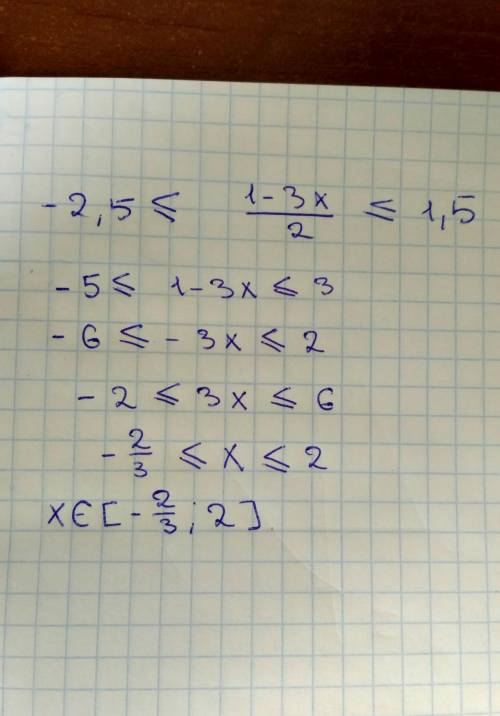 -2,5 ≤ (1-3x)/2 ≤ 1,5
-5 ≤ 1-3x ≤ 3
-6 ≤ -3x ≤ 2
-2 ≤ 3x ≤ 6
-2/3 ≤ x ≤ 2
x∈[-2/3; 2]